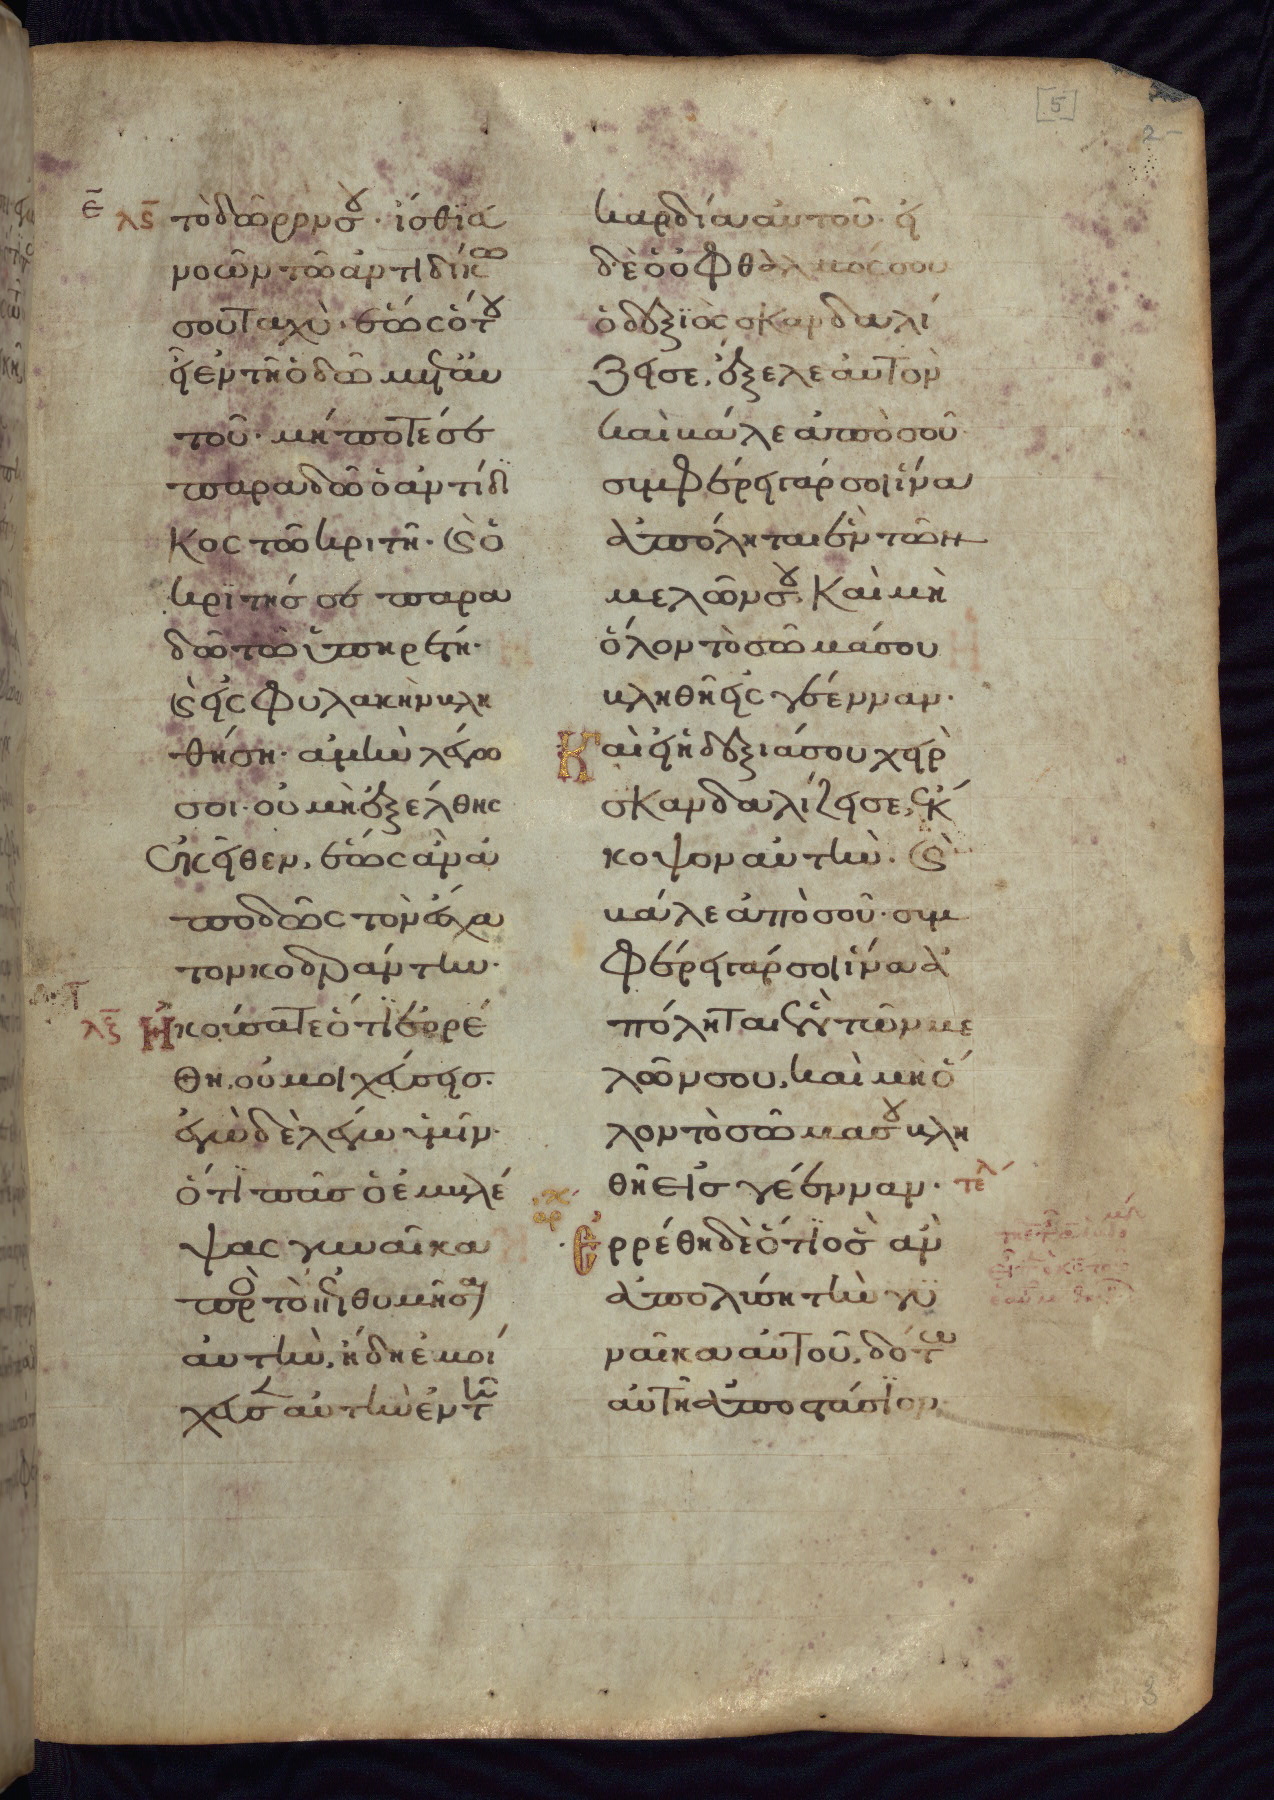 [5]
2
ε̄
λς̄ τὸ δῶρρνσου · ἴσθι ἀ
νοῶν τῶ ἀντιδίκω
σου ταχὺ · ἕως ὅτου
εἶ ἐν τῆ ὁδῶ μετ᾽ αυ
τοῦ · μή ποτέ σε
παραδῶ ὁ ἀντίδι
κος τῶ κριτῆ · καὶ ὁ
κριτής σε παρα
δῶ τῶ ὑπηρέτη ·
καὶ εἰς φυλακὴν κλη
θήση · ἀμὴν λέγω
σοι · οὐ μὴ ἐξέλθης
ἐκεῖθεν, ἕως ἂν ἀ
ποδῶς τὸν ἔσχα
τον κοδράντην ·
λζ̄ Ηκούσατε ὅτι ἐρρέ
θη, οὐ μοιχεύσεις ·
ἐγὼ δὲ λέγω ὑμῖν ·
ὅτι πᾶσ ὁ ἐμβλέ
ψας γυναῖκα
πρὸς τὸ ἐπιθυμῆσαι
αυτὴν, ἤδη ἐμοί
χευσεν αυτὴν ἐν τῆ
καρδία αυτοῦ · εἰ
δὲ ὁ ὀφθαλμός σου
ὁ δεξιὸς σκανδαλί
ζει σε, ἔξελε ἀυτὸν
καὶ βάλε ἀπὸ σοῦ
συμφέρει γάρ σοι ἵνα
ἀπόληται ἓν τῶν
μελῶν σου, Καὶ μὴ
ὅλον τὸ σῶμά σου
βληθῆ εἰς γέενναν ·
Καὶ εἰ ἡ δεξιά σου χεὶρ
σκανδαλίζει σε, ἔκ
κοψον αυτὴν · καὶ
βάλε ἀπὸ σοῦ · συμ
φέρει γάρ σοι ἵνα ἀ
πόληται ἓν τῶν με
λῶν σου, καὶ μὴ ὅ
λον τὸ σῶμα σου βλη
θῆ εἰσ γέενναν · τελ
Ερρέθη δὲ ὅτι ὃς ἂν
ἀπολύση τὴν γυ
ναῖκα αὐτοῦ, δότω
αὐτῆ ἀποστάσιον
3